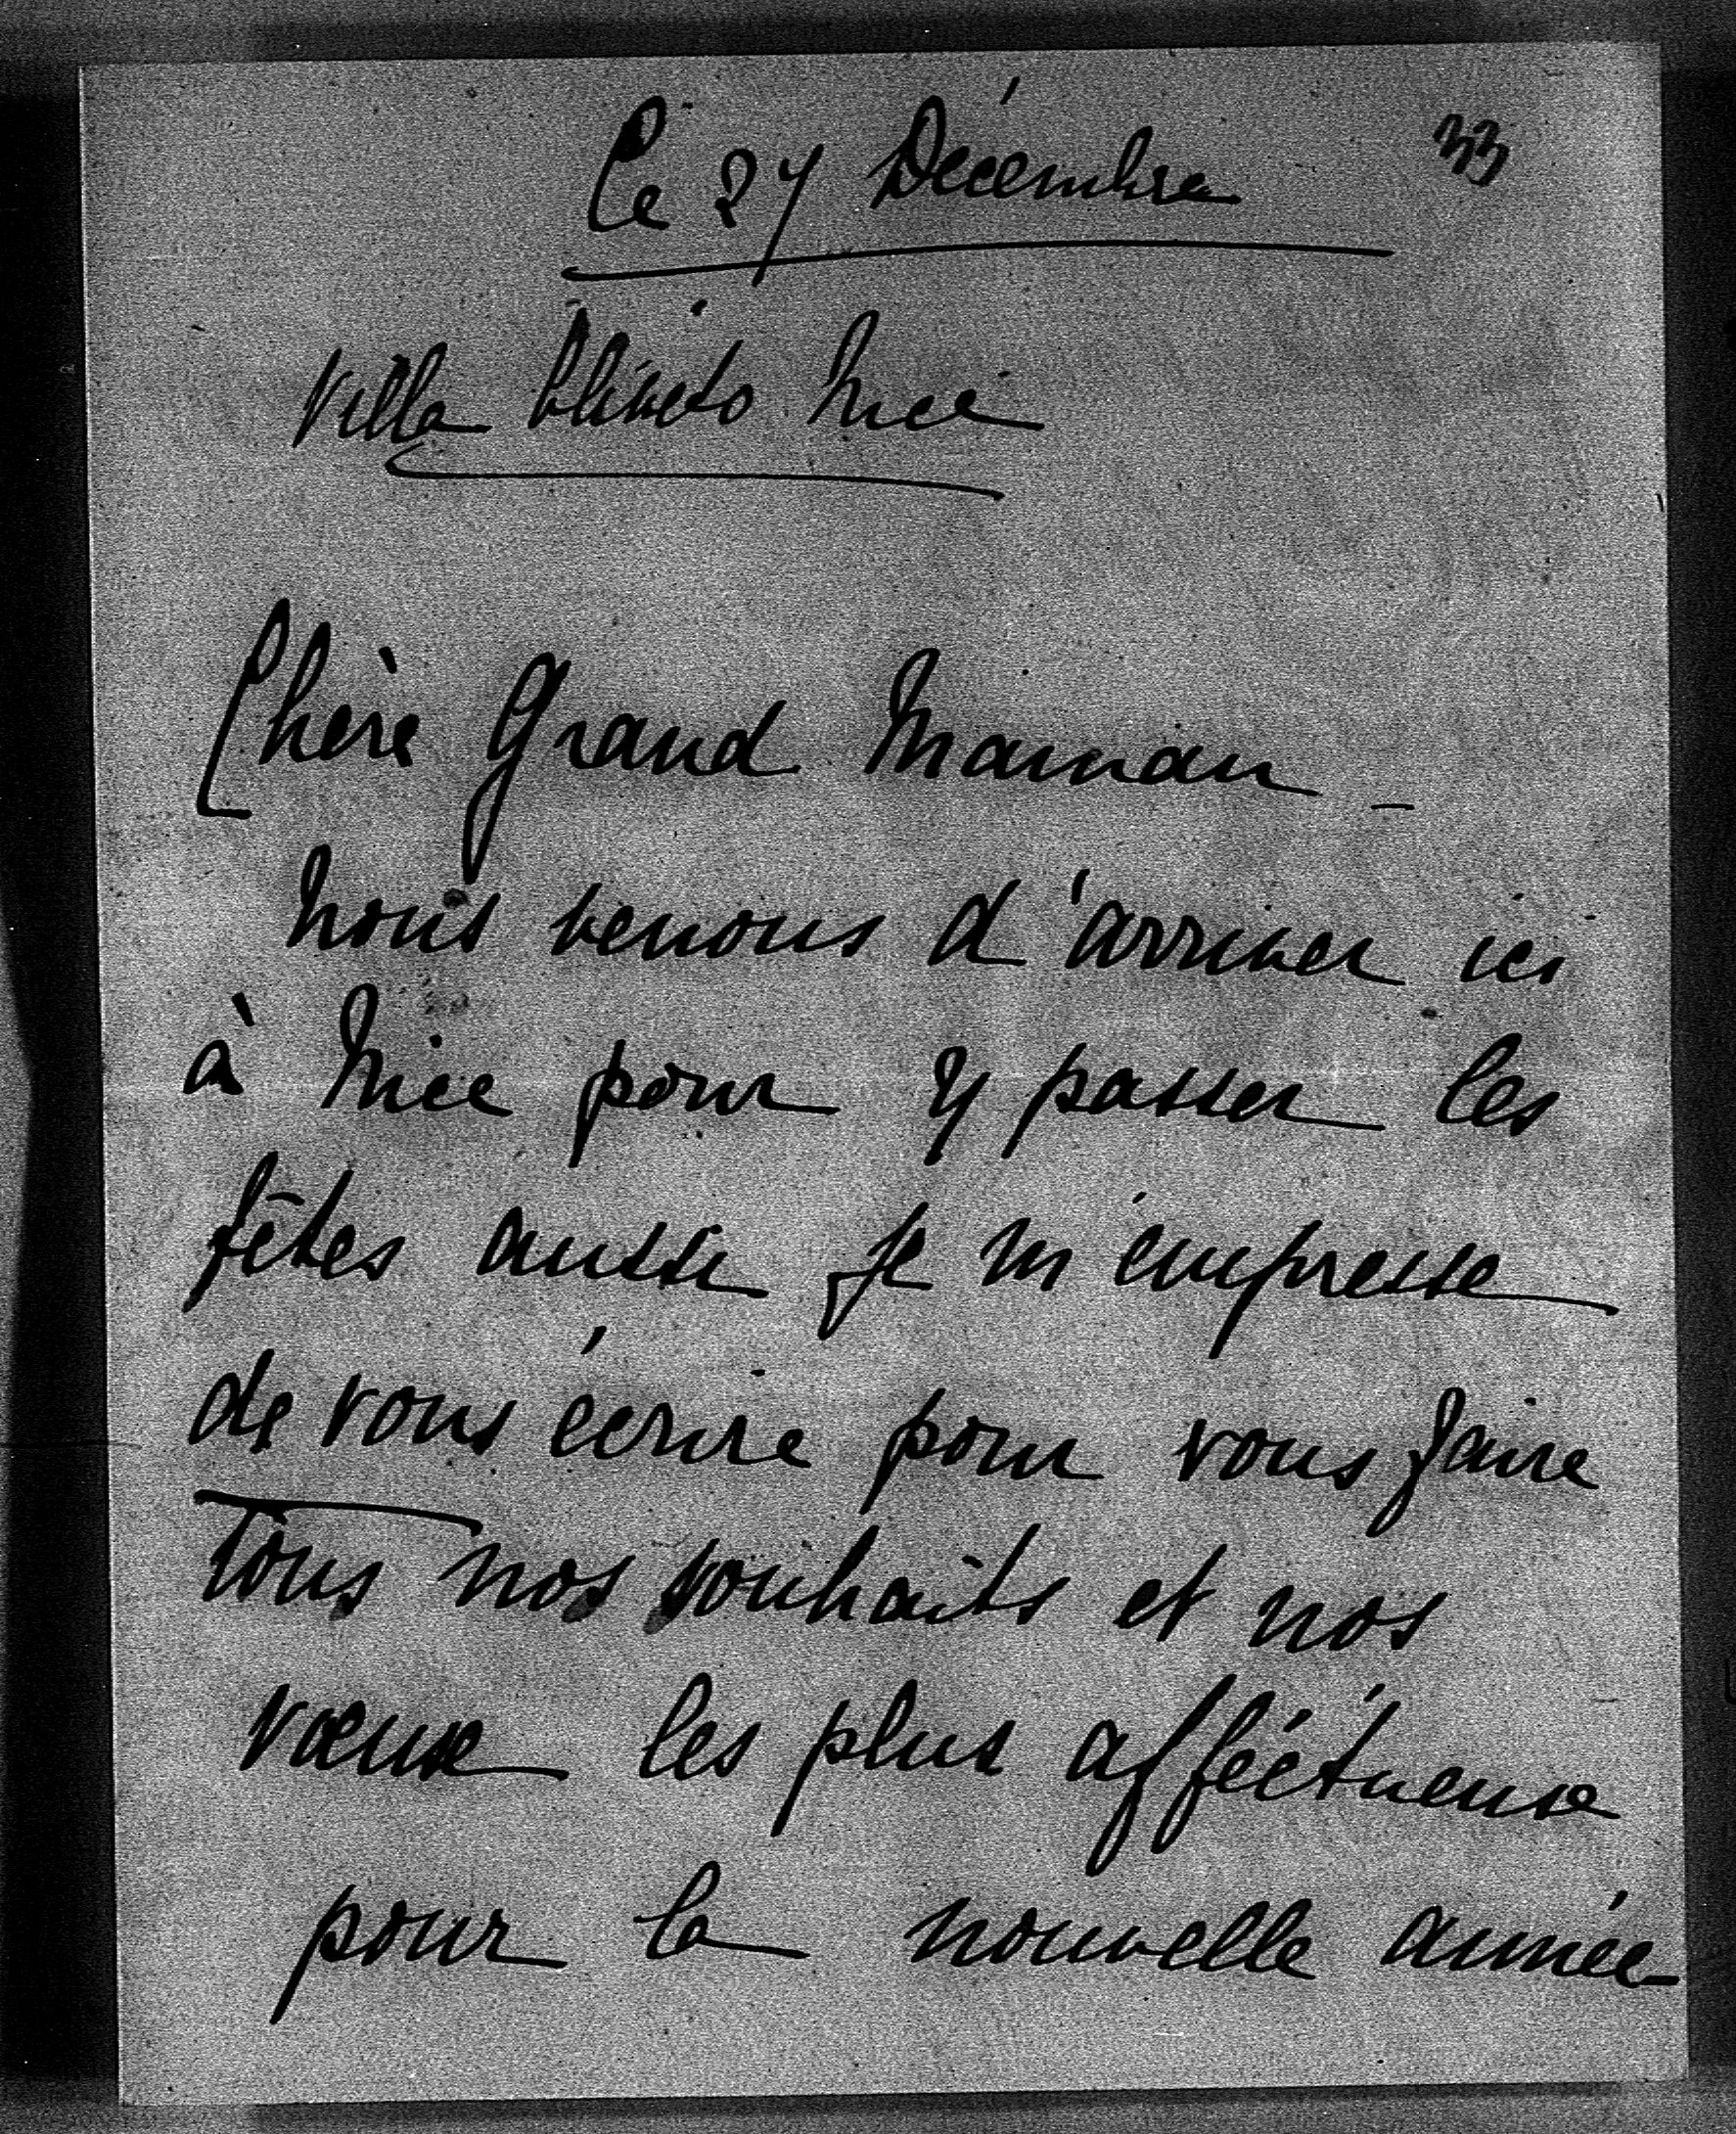 Le 27 Décembre 33
Villa Oliveto Nice
Chère Grand Maman -
Nous venons d'arriver ici
à Nice pour y passer les
fêtes aussi je m'empresse
de vous écrire pour vous faire
tous nos souhaits et nos
vœux les plus afféctueux
pour la nouvelle année